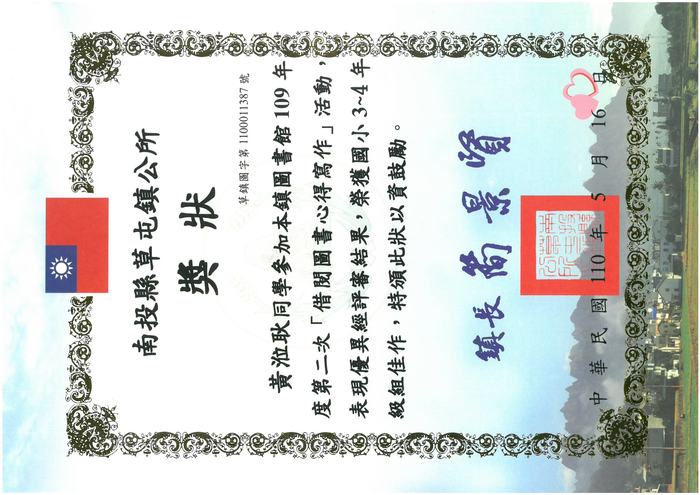 南投縣草屯鎮公所
獎狀
草鎮圖字第 1100011387 號
黃涖耿同學參加本鎮圖書館 109 年
度第二次「借閱圖書心得寫作」活動，
表現優異經評審結果，榮獲國小 3~4 年
級組佳作，特頒此狀以資鼓勵。
鎮長 簡景賢
中華民國 110 年 5 月 16 日